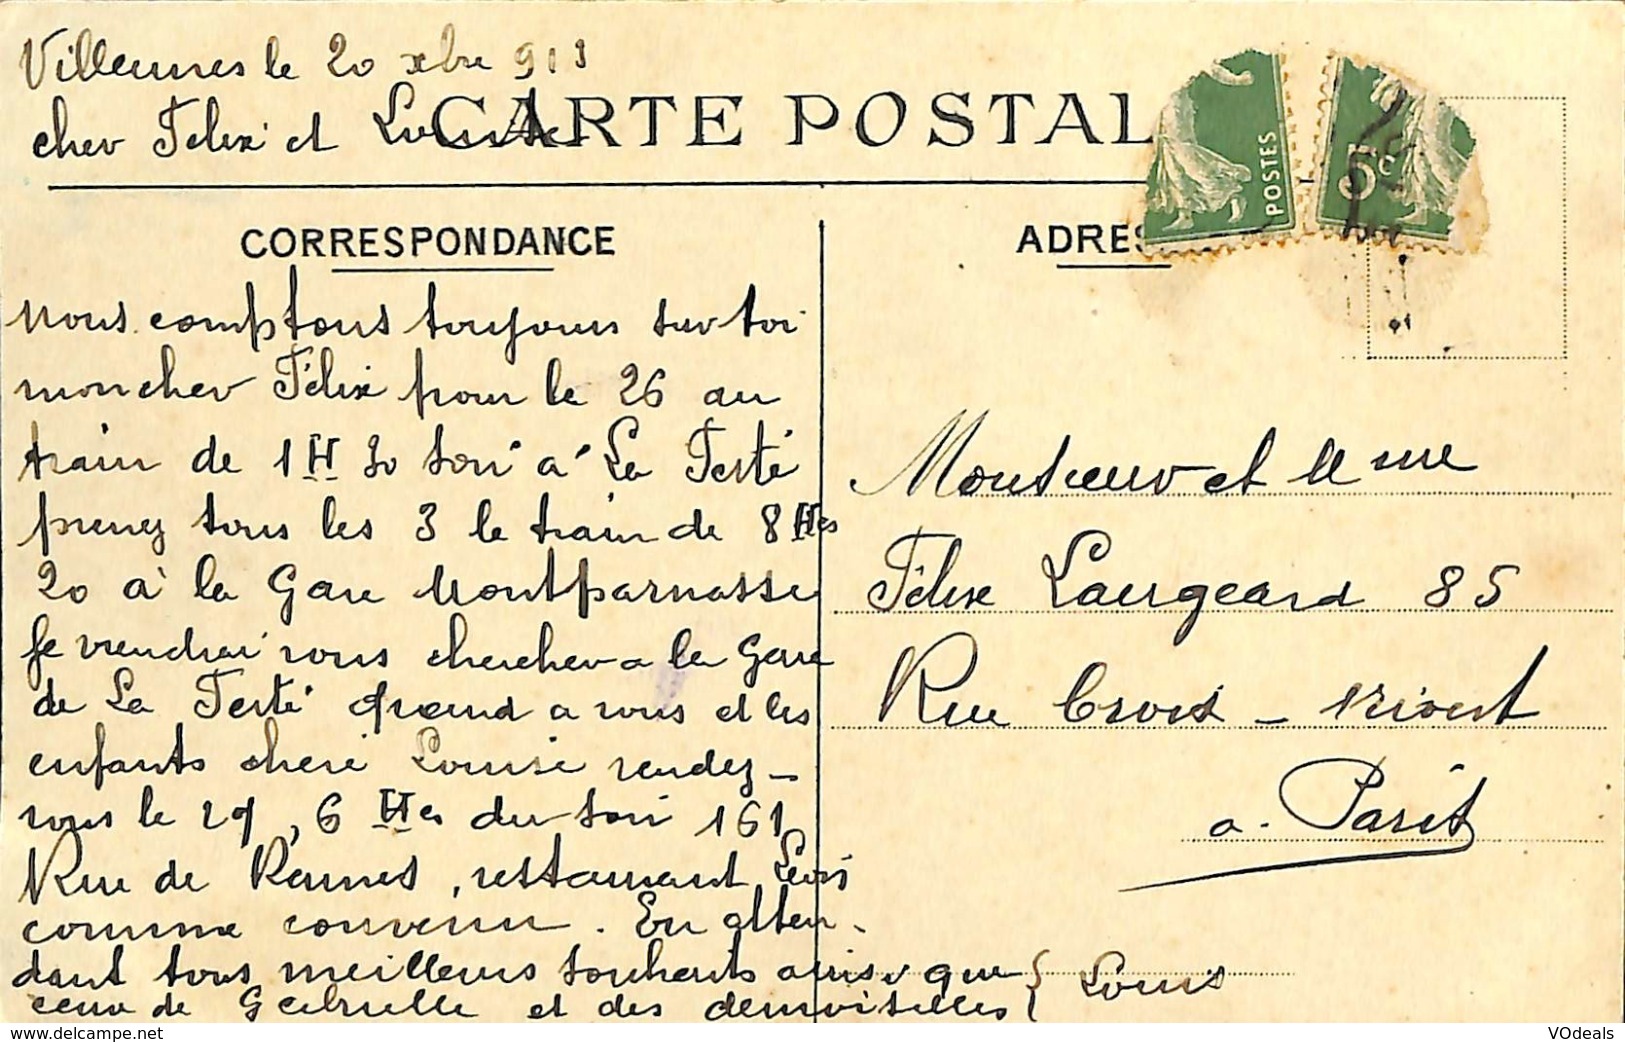 Villennes le 20 xbre 913
cher Félix et Louise
CARTE POSTAL
POSTES
5c
CORRESPONDANCE
ADRES
nous comptons toujours sur toi
mon cher Félix pour le 26 au
train de 1H 30 soir à La Ferté
prenez tous les 3 le train de 8 Hes
20 à la Gare Montparnasse
je viendrai vous chercher a la Gare
de La Ferté quand a vous et les
enfants chère Louise rendez-
vous le 29, 6 Hes du soir 161
Rue de Rennes, restaurant
comme convenu. En atten-
dant tous meilleurs souhaits ainsi que
ceux de Gabrielle et des demoiselles } Louis
Monsieur et Mme
Félix Laurgeard 85
Rue Croix-Nivert
a. Paris
VOdeals
www.delcampe.net